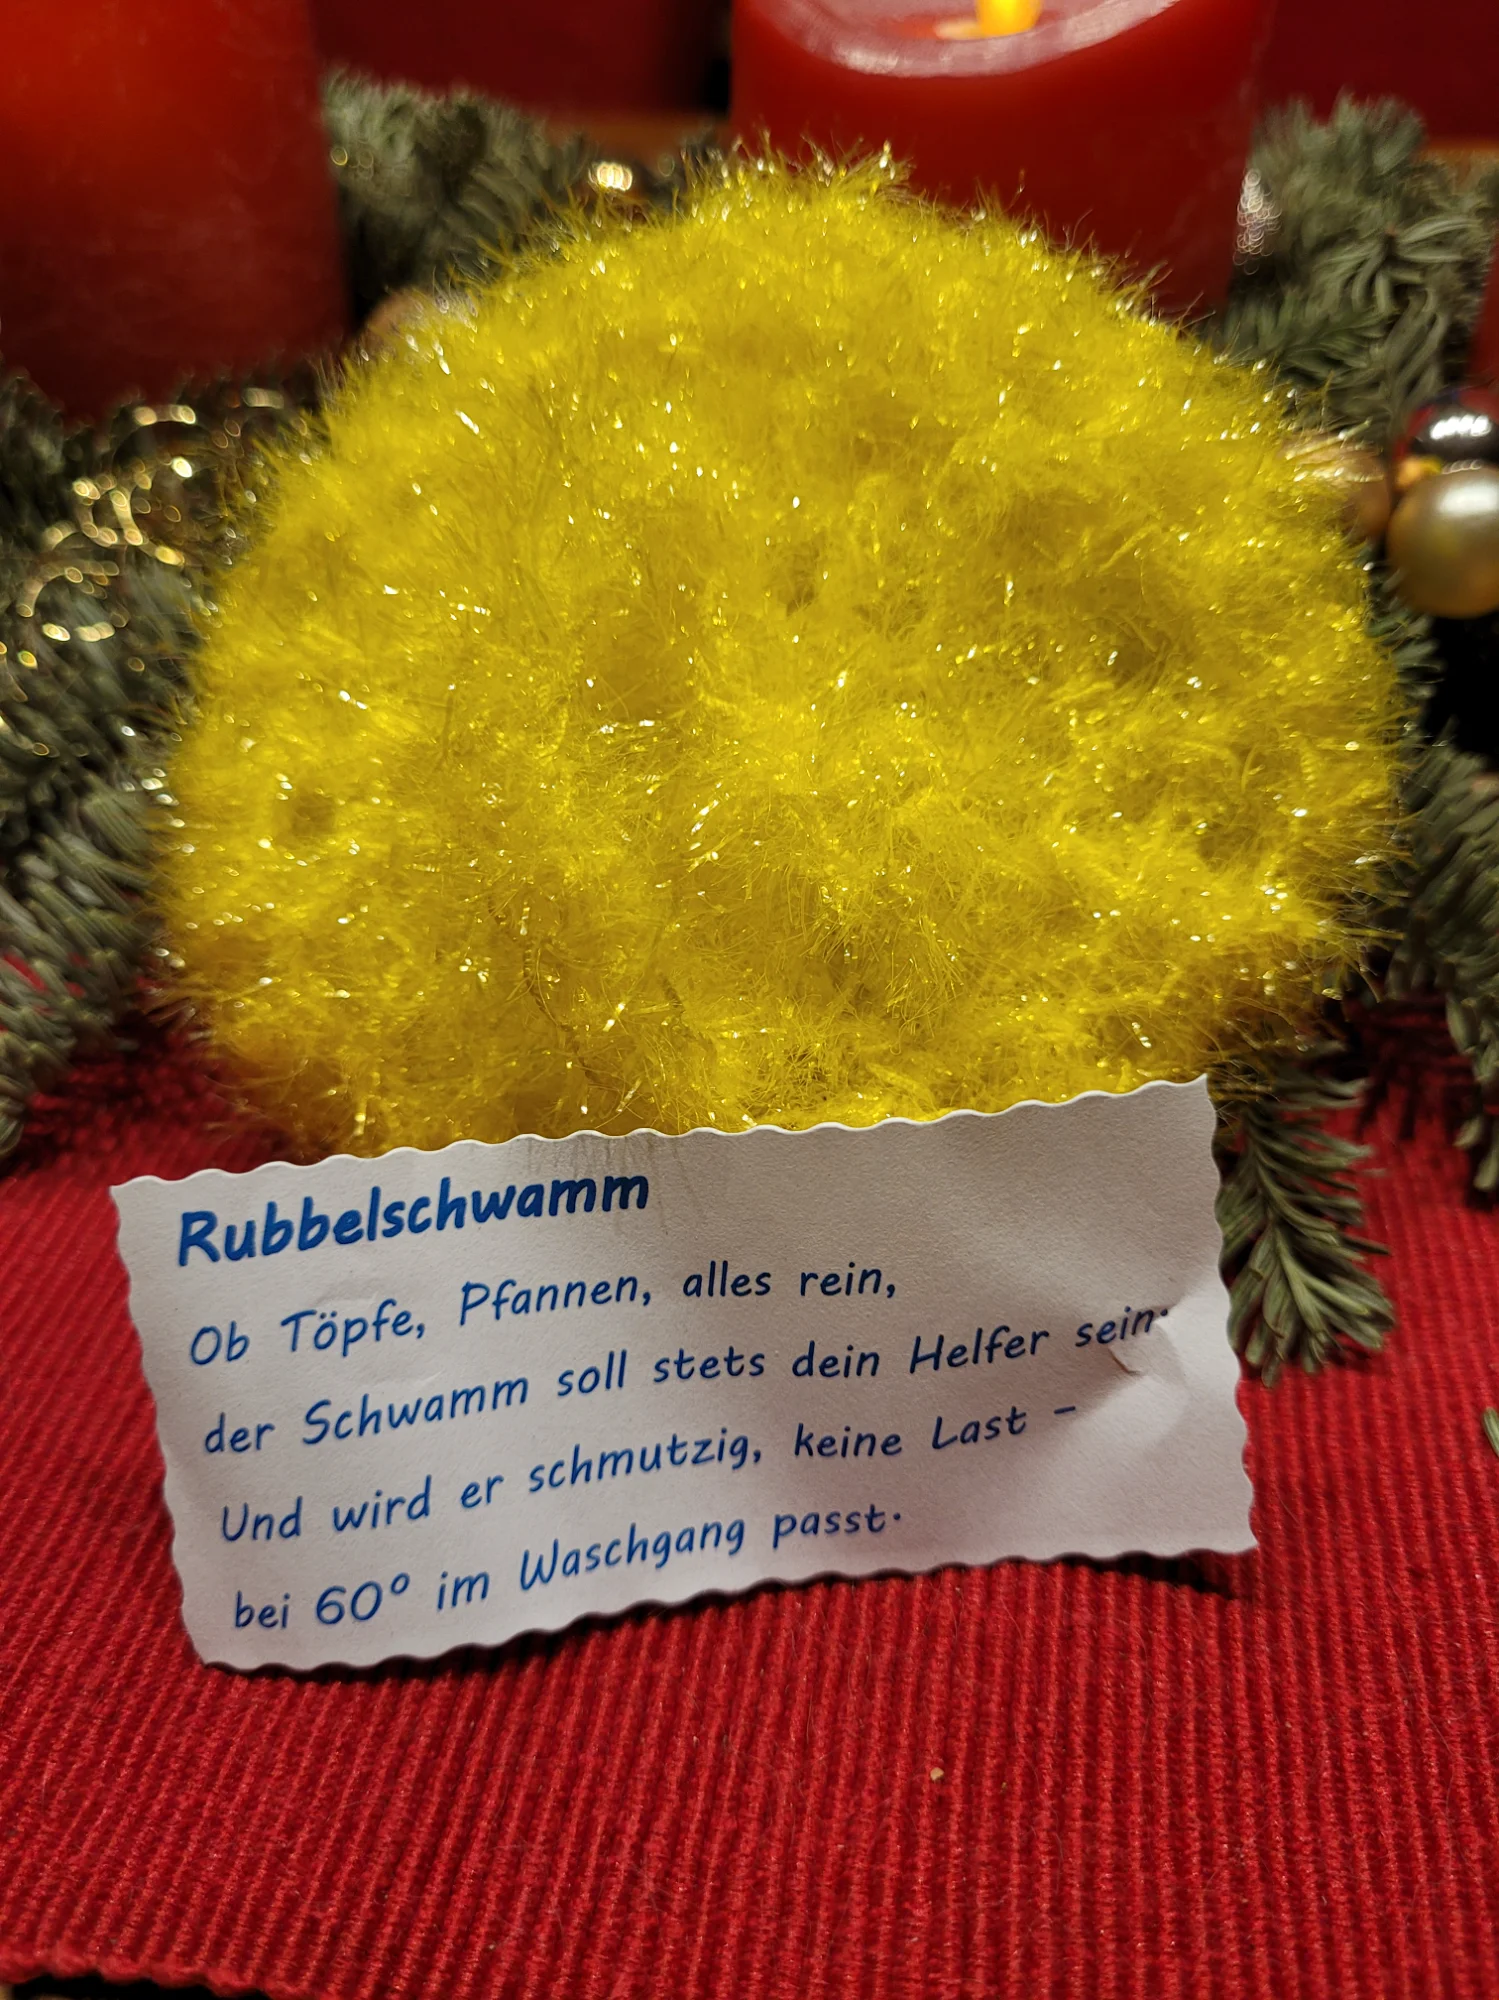 Rubbelschwamm
Ob Töpfe, Pfannen, alles rein,
der Schwamm soll stets dein Helfer sein.
Und wird er schmutzig, keine Last -
bei 60° im Waschgang passt.